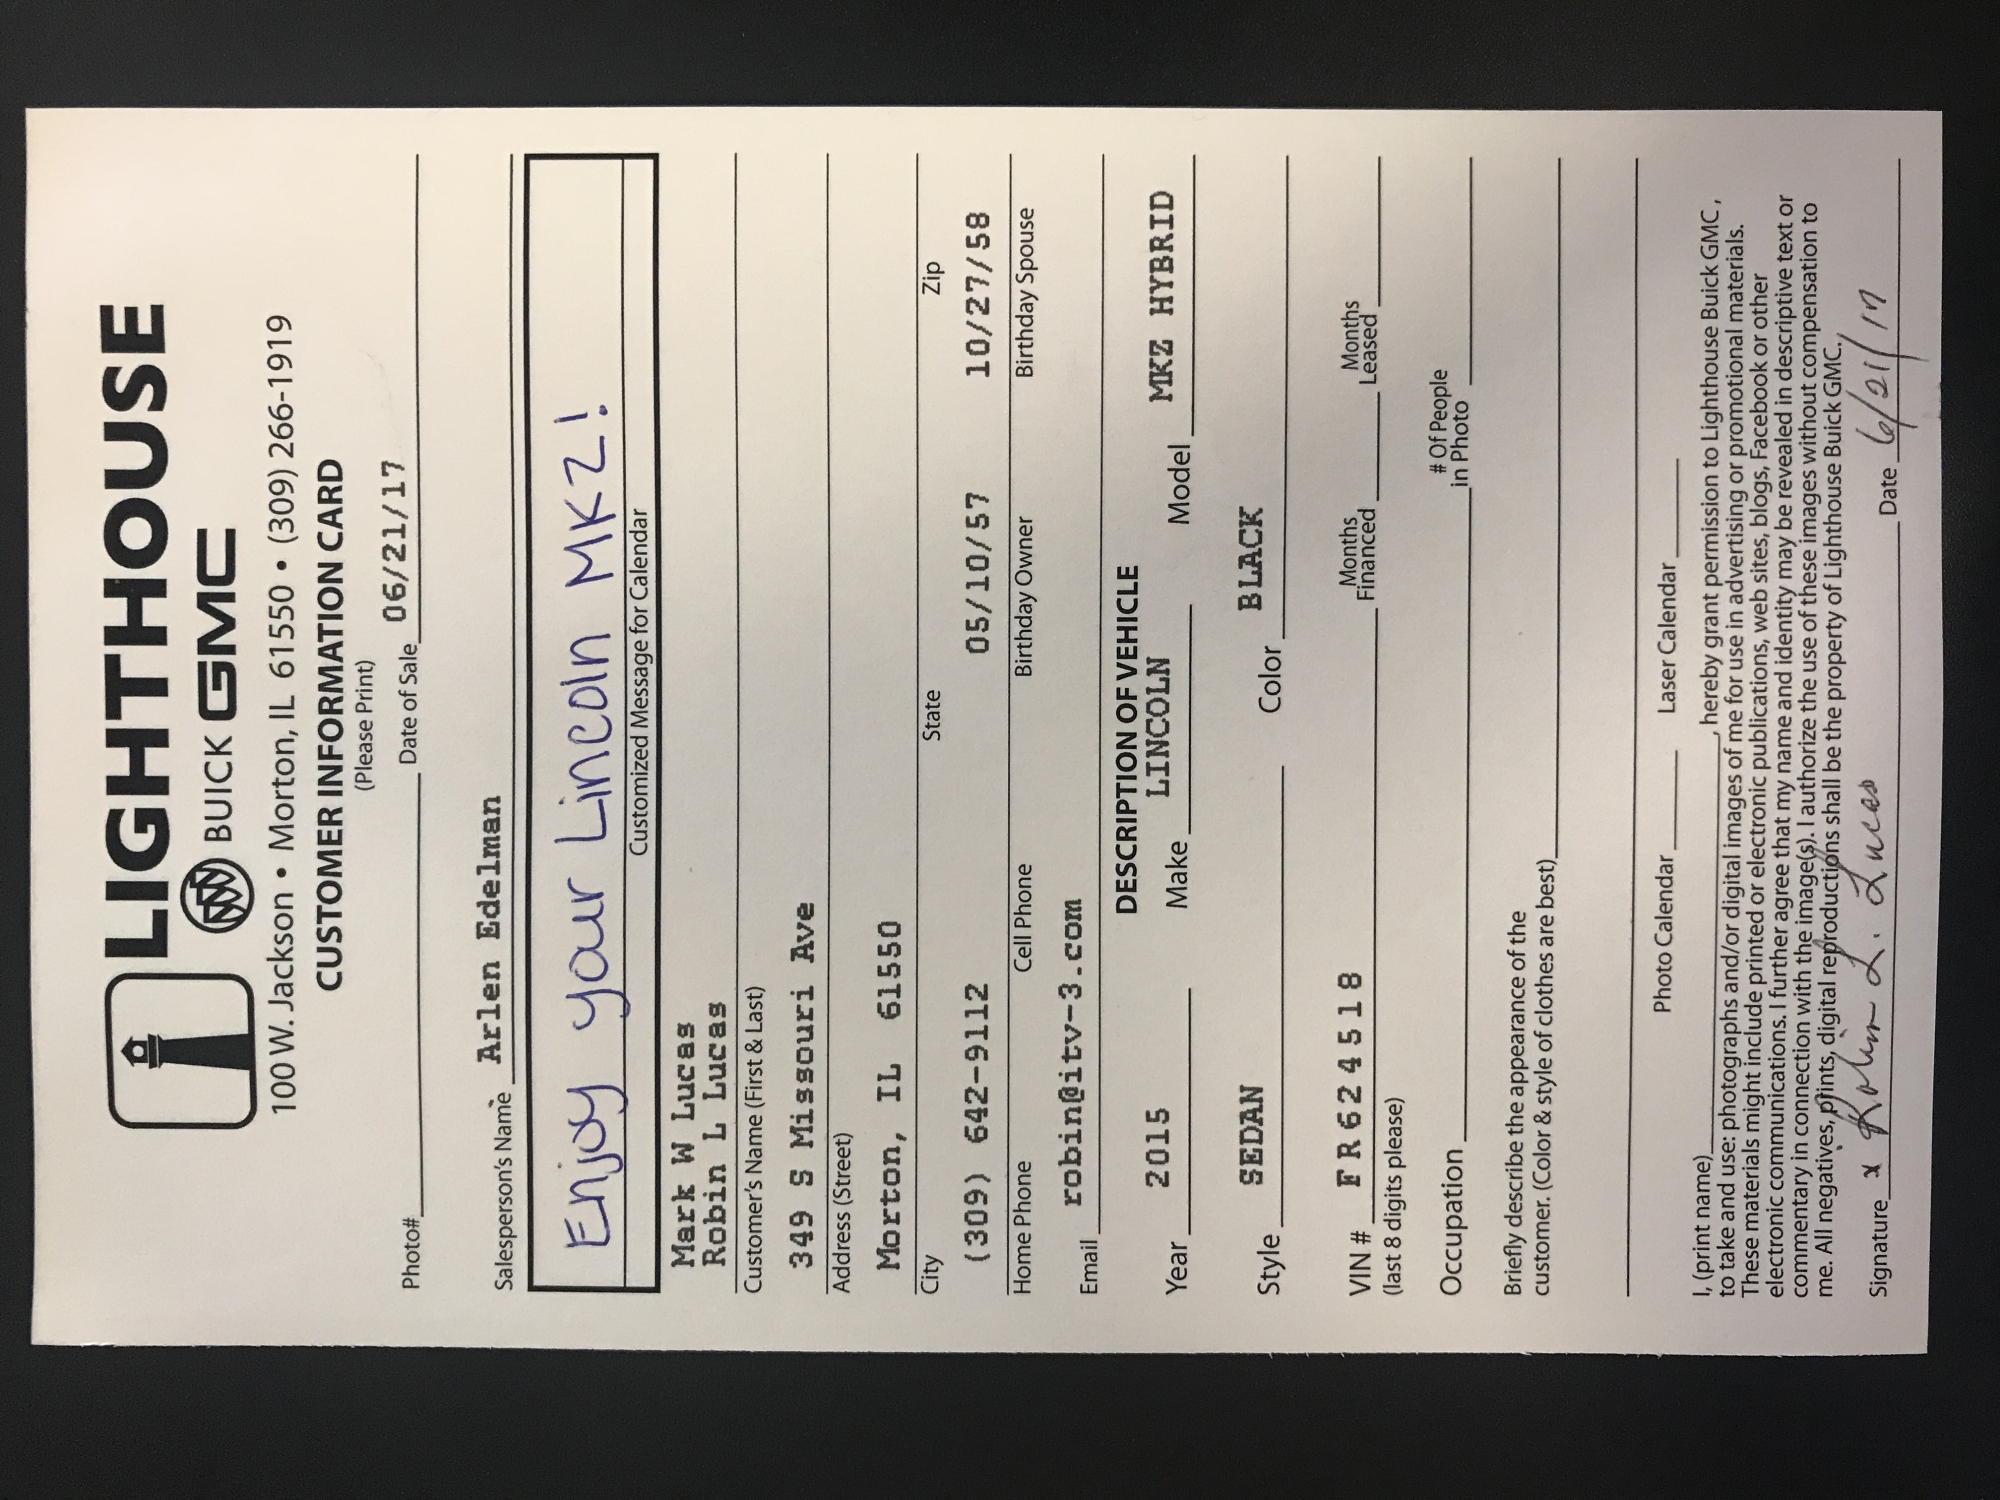 LIGHTHOUSE
BUICK GMC
100 W. Jackson • Morton, IL 61550 • (309) 266-1919
CUSTOMER INFORMATION CARD
(Please Print)
Photo# Date of Sale 06/21/17
Salesperson's Name Arlen Edelman
Enjoy your Lincoln MKZ!
Customized Message for Calendar
Mark W Lucas
Robin L Lucas
Customer's Name (First & Last)
349 S Missouri Ave
Address (Street)
Morton, IL 61550
City State Zip
(309) 642-9112 05/10/57 10/27/58
Home Phone Cell Phone Birthday Owner Birthday Spouse
Email robin@itv-3.com
DESCRIPTION OF VEHICLE
Year 2015 Make LINCOLN Model MKZ HYBRID
Style SEDAN Color BLACK
VIN # FR624518 Months Financed Months Leased
(last 8 digits please)
Occupation # Of People in Photo
Briefly describe the appearance of the
customer. (Color & style of clothes are best)
Photo Calendar Laser Calendar
I, (print name) , hereby grant permission to Lighthouse Buick GMC ,
to take and use: photographs and/or digital images of me for use in advertising or promotional materials.
These materials might include printed or electronic publications, web sites, blogs, Facebook or other
electronic communications. I further agree that my name and identity may be revealed in descriptive text or
commentary in connection with the image(s). I authorize the use of these images without compensation to
me. All negatives, prints, digital reproductions shall be the property of Lighthouse Buick GMC.
Signature x Robin L. Lucas Date 6/21/17